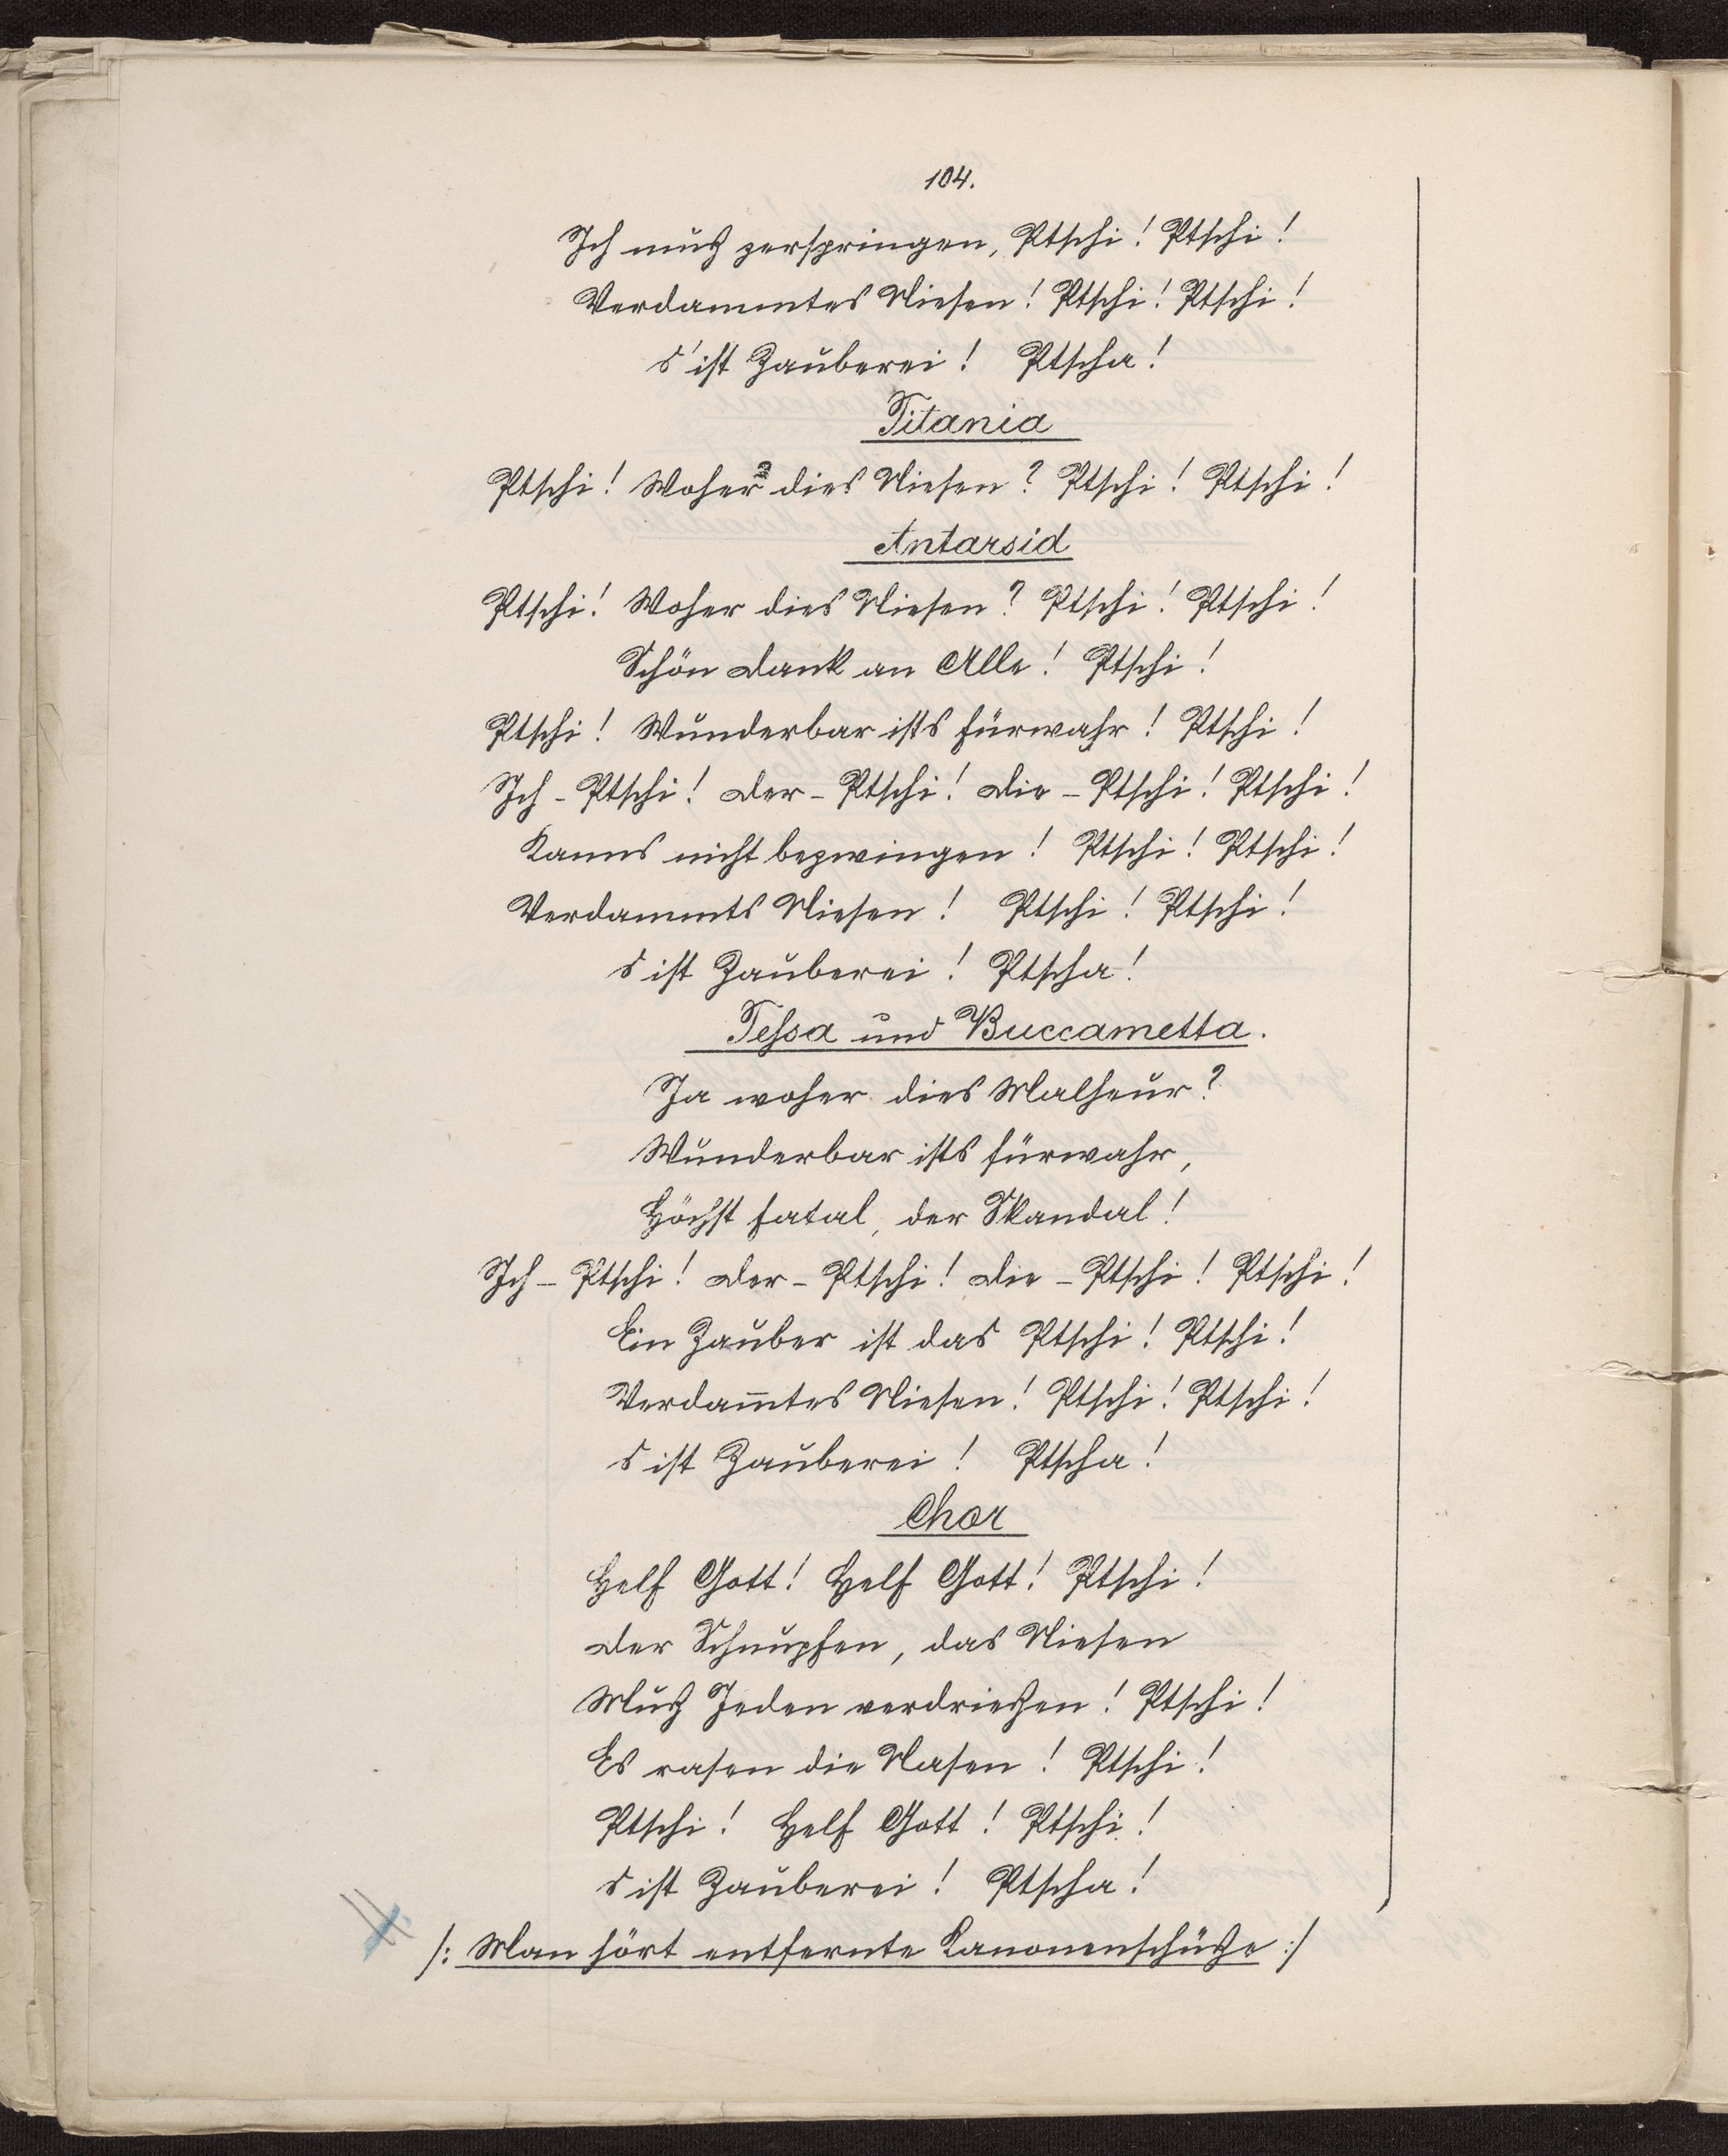 104.
Ich muß zerspringen, Ptschi! Ptschi!
Verdammtes Niesen! Ptschi! Ptschi!
s'ist Zauberei! Ptscha!
Titania
Ptschi! Woher dies Niesen? Ptschi! Ptschi!
Antarsid
Ptschi! Woher dies Niesen? Ptschi! Ptschi!
Schön Dank an Alle! Ptschi!
Ptschi! Wunderbar ists fürwahr! Ptschi!
Ich - Ptschi! der - Ptschi! die - Ptschi! Ptschi!
Kanns nicht bezwingen! Ptschi! Ptschi!
Verdammts Niesen! Ptschi! Ptschi!
s ist Zauberei! Ptscha!
Tessa und Buccametta.
Ja woher dies Malheur?
Wunderbar ists fürwahr,
Höchst fatal, der Skandal!
Ich - Ptschi! der - Ptschi! die - Ptschi! Ptschi!
Ein Zauber ist das Ptschi! Ptschi!
Verdam̅tes Niesen! Ptschi! Ptschi!
s ist Zauberei! Ptscha!
Chor
Helf Gott! Helf Gott! Ptschi!
der Schnupfen, das Niesen
Muß Jeden verdrießen! Ptschi!
Es rasen die Nasen! Ptschi!
Ptschi! Helf Gott! Ptschi!
s ist Zauberei! Ptscha!
/: Man hört entfernte Kanonenschüße :/